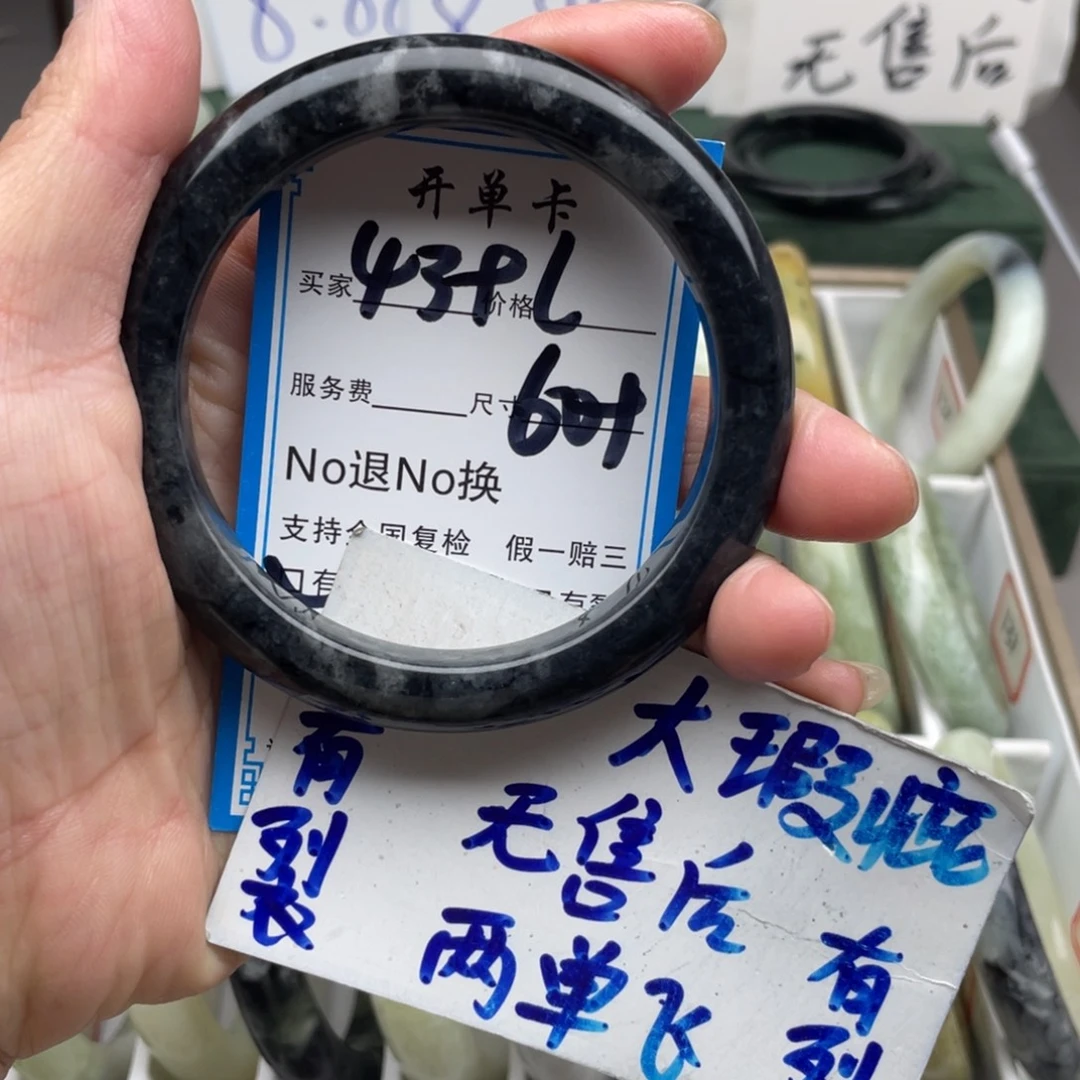 无售后
开单卡
买家 价格
服务费 尺寸
No退No换
支持全国复检 假一赔三
大瑕疵
无售后
两单飞
有裂
有裂